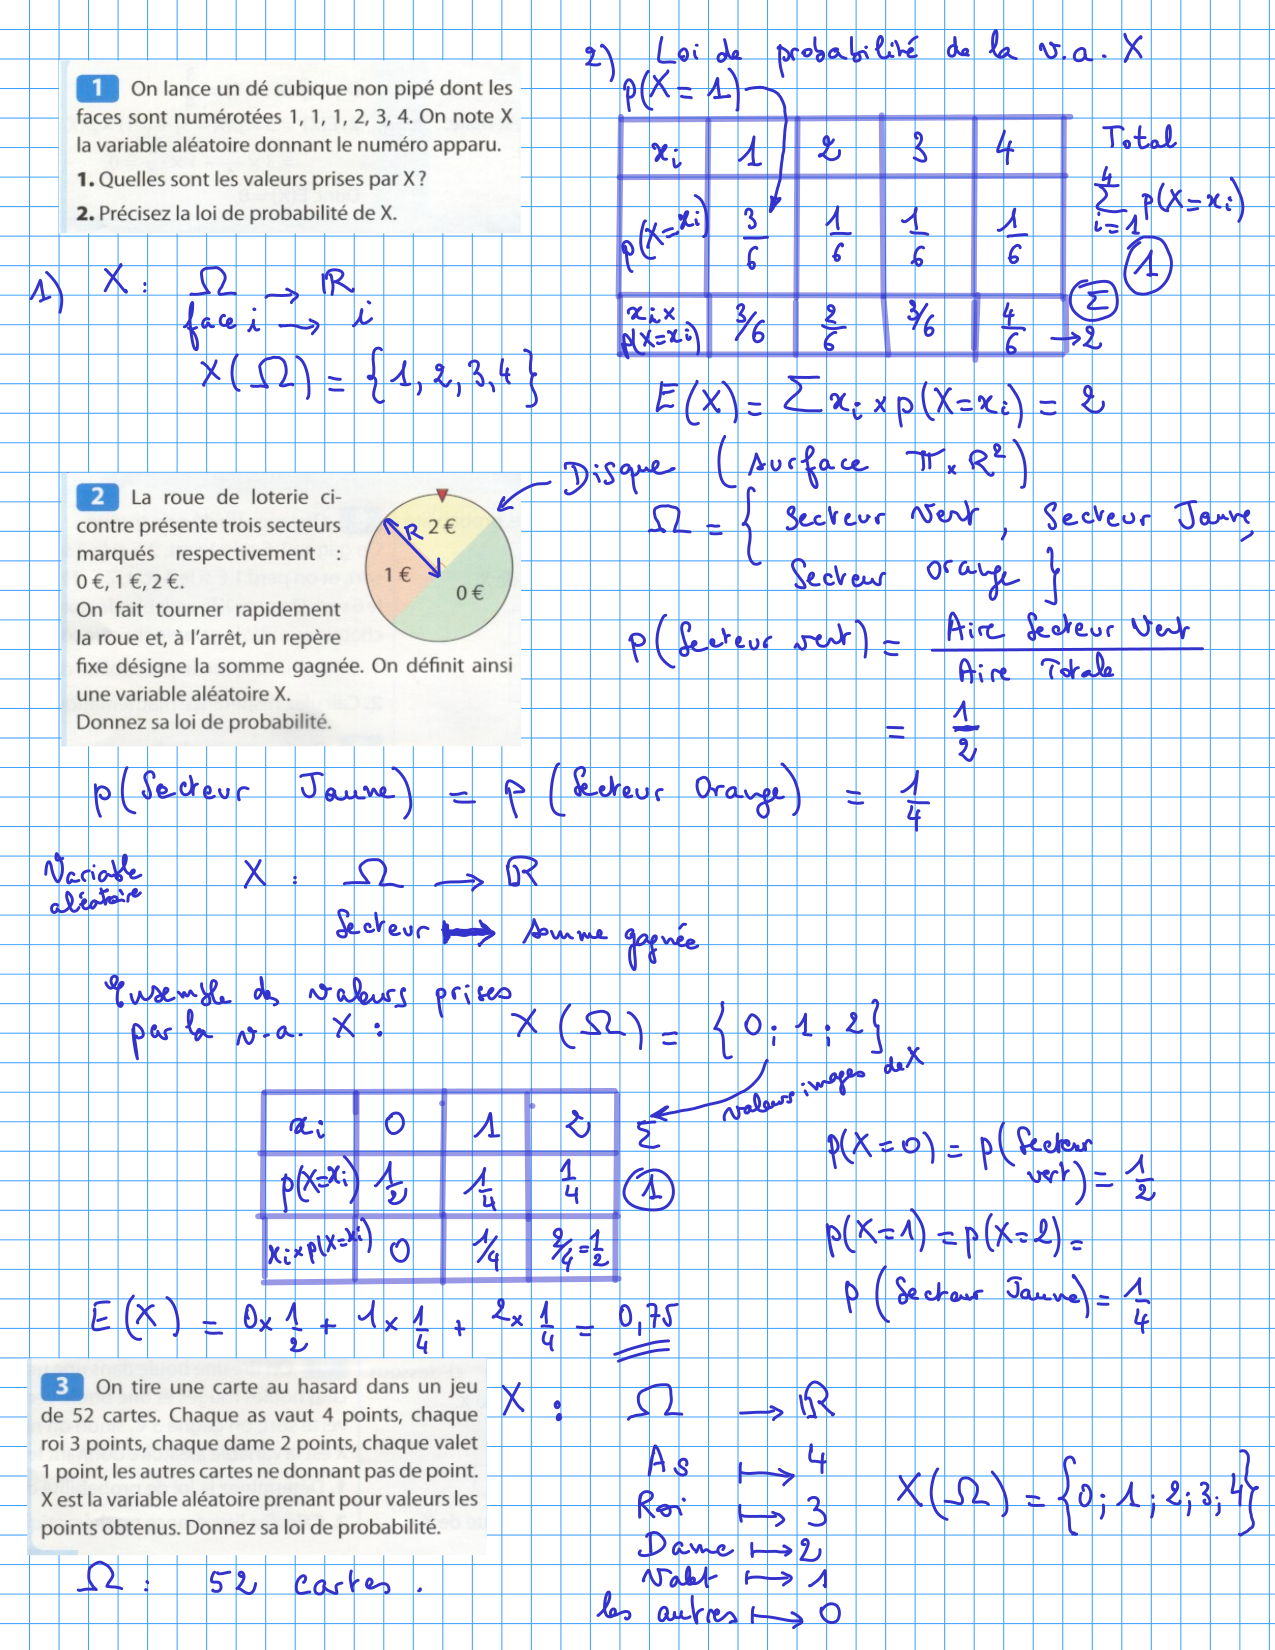 1 On lance un dé cubique non pipé dont les
faces sont numérotées 1, 1, 1, 2, 3, 4. On note X
la variable aléatoire donnant le numéro apparu.
1. Quelles sont les valeurs prises par X ?
2. Précisez la loi de probabilité de X.
1) X : Ω → ℝ
face i → i
X(Ω) = {1, 2, 3, 4}
2) Loi de probabilité de la v.a. X
p(X = 1)
xi 1 2 3 4 Total
p(X=xi) 3/6 1/6 1/6 1/6 ∑_{i=1}^{4} p(X=xi)
1
xi × p(X=xi) 3/6 2/6 3/6 4/6 Σ → 2
E(X) = ∑ xi × p(X=xi) = 2
2 La roue de loterie ci-
contre présente trois secteurs
marqués respectivement :
0 €, 1 €, 2 €.
On fait tourner rapidement
la roue et, à l'arrêt, un repère
fixe désigne la somme gagnée. On définit ainsi
une variable aléatoire X.
Donnez sa loi de probabilité.
R
2 €
1 €
0 €
Disque (surface π × R²)
Ω = { Secteur Vert, Secteur Jaune,
Secteur orange }
p(Secteur vert) = Aire Secteur Vert / Aire Totale
= 1/2
p(Secteur Jaune) = p(Secteur Orange) = 1/4
Variable
aléatoire
X : Ω → ℝ
Secteur ↦ somme gagnée
Ensemble des valeurs prises
par la v.a. X : X(Ω) = {0 ; 1 ; 2}
valeurs images de X
xi 0 1 2 Σ
p(X=xi) 1/2 1/4 1/4 1
xi × p(X=xi) 0 1/4 2/4 = 1/2
p(X = 0) = p(Secteur
vert) = 1/2
p(X=1) = p(X=2) =
p(Secteur Jaune) = 1/4
E(X) = 0 × 1/2 + 1 × 1/4 + 2 × 1/4 = 0,75
3 On tire une carte au hasard dans un jeu
de 52 cartes. Chaque as vaut 4 points, chaque
roi 3 points, chaque dame 2 points, chaque valet
1 point, les autres cartes ne donnant pas de point.
X est la variable aléatoire prenant pour valeurs les
points obtenus. Donnez sa loi de probabilité.
Ω : 52 cartes.
X : Ω → ℝ
As ↦ 4
Roi ↦ 3
Dame ↦ 2
Valet ↦ 1
les autres ↦ 0
X(Ω) = {0 ; 1 ; 2 ; 3 ; 4}